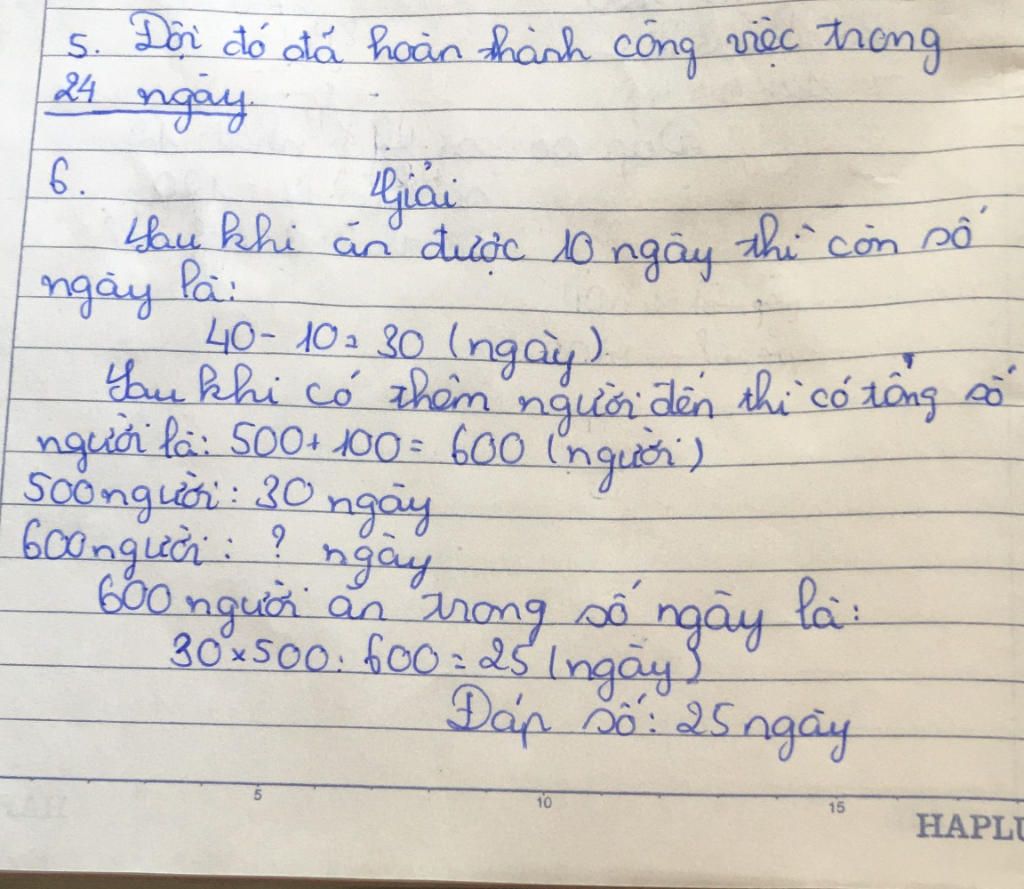 5. Đội đó đã hoàn thành công việc trong
24 ngày.
6. Giải
Sau khi ăn được 10 ngày thì còn số
ngày là:
40 - 10 = 30 (ngày)
Sau khi có thêm người đến thì có tổng số
người là: 500 + 100 = 600 (người)
500 người: 30 ngày
600 người: ? ngày
600 người ăn trong số ngày là:
30 × 500 : 600 = 25 (ngày)
Đáp số: 25 ngày
5 10 15
HAPLU